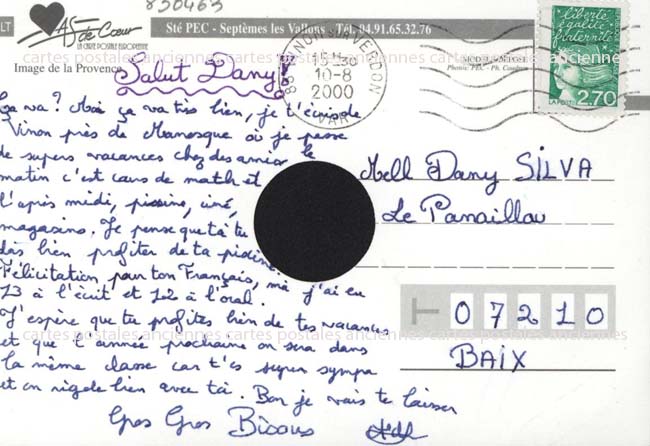 830463
LT
AS de Cœur
LA CARTE POSTALE EUROPEENNE
Sté PEC - Septèmes les Vallons Tél. 04.91.65.32.76
Image de la Provence
MODELE DEPOSE
Photos: PEC - Ph.
liberté
égalité
fraternité
LA POSTE
2,70
VINON S/ VERDON
15H30
10-8
2000
VAR
Salut Dany!
Ça va? Moi ça va très bien, je t'écris de
Vinon près de Manosque où je passe
de supers vacances chez des amies le
matin c'est cours de math et
l'après midi, piscine, ciné,
magasins. Je pense que toi tu
dois bien profiter de ta piscine.
Félicitation pour ton Français, moi j'ai eu
13 à l'écrit et 12 à l'oral.
J'espère que tu profites bien de tes vacances
et que l'année prochaine on sera dans
la même classe car t'es super sympa
et on rigole bien avec toi. Bon je vais te laisser
Gros Gros Bisous
Mell Dany SILVA
Le Panaillou
07210
BAIX
cartes postales anciennes
cartes postales anciennes
cartes postales anciennes
cartes postales anciennes